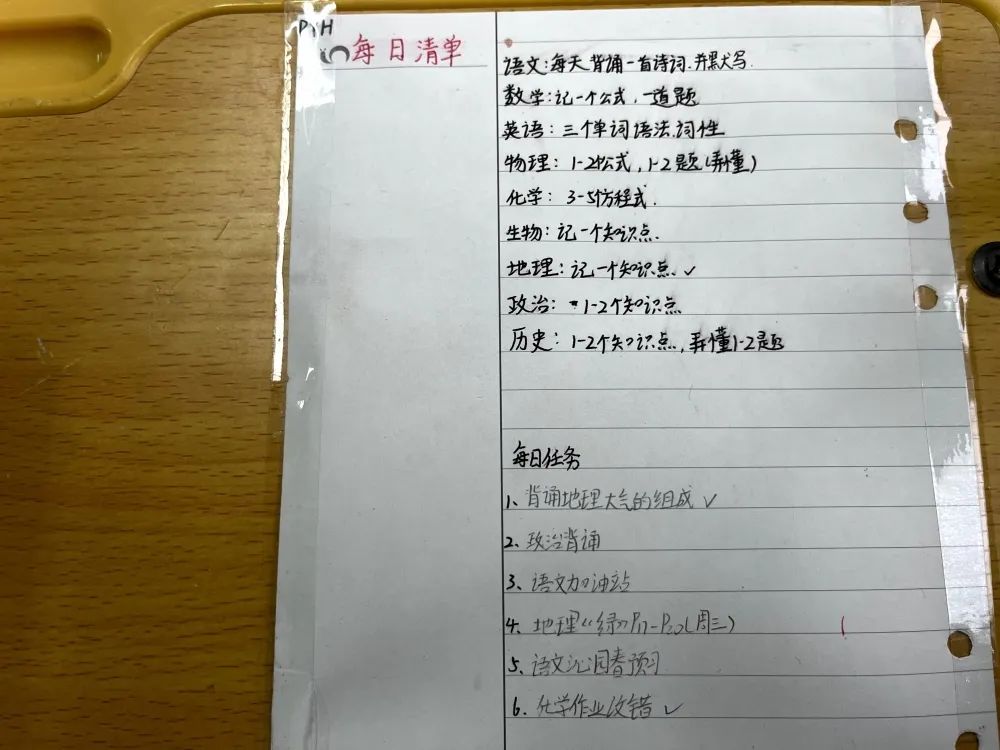 PYH
每日清单
语文：每天背诵一首诗词.并默写.
数学：记一个公式，一道题
英语：三个单词语法.词性
物理：1-2个公式，1-2题(弄懂)
化学：3-5个方程式.
生物：记一个知识点.
地理：记一个知识点. ✓
政治：1-2个知识点
历史：1-2个知识点，弄懂1-2题
每日任务
1、背诵地理大气的组成 ✓
2、政治背诵
3、语文加油站
4、地理《绿》P11-P20(周三)
5、语文沁园春预习
6、化学作业改错 ✓